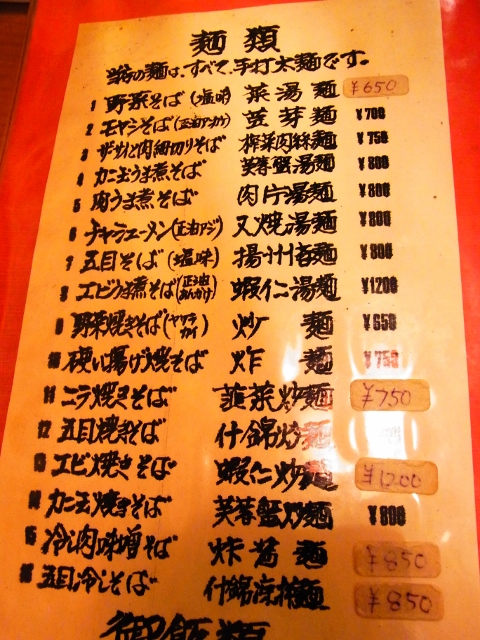 麺類
当店の麺は、すべて、手打太麺です。
1 野菜そば(塩味) 菜湯麺 ¥650
2 モヤシそば(正油アンカケ) 豆芽麺 ¥700
3 ザーサイと肉細切りそば 榨菜肉絲麺 ¥750
4 カニ玉うま煮そば 芙蓉蟹湯麺 ¥800
5 肉うま煮そば 肉片湯麺 ¥800
6 チャーシューメン(正油アジ) 叉焼湯麺 ¥800
7 五目そば(塩味) 揚州湯麺 ¥800
8 エビうま煮そば(正油あんかけ) 蝦仁湯麺 ¥1200
9 野菜焼きそば(ヤワラカイ) 炒麺 ¥650
10 硬い揚げ焼そば 炸麺 ¥750
11 ニラ焼きそば 韮菜炒麺 ¥750
12 五目焼きそば 什錦炒麺
13 エビ焼きそば 蝦仁炒麺 ¥1200
14 カニ玉焼きそば 芙蓉蟹炒麺 ¥800
15 冷し肉味噌そば 炸醤麺 ¥850
16 五目冷しそば 什錦涼拌麺 ¥850
御飯類